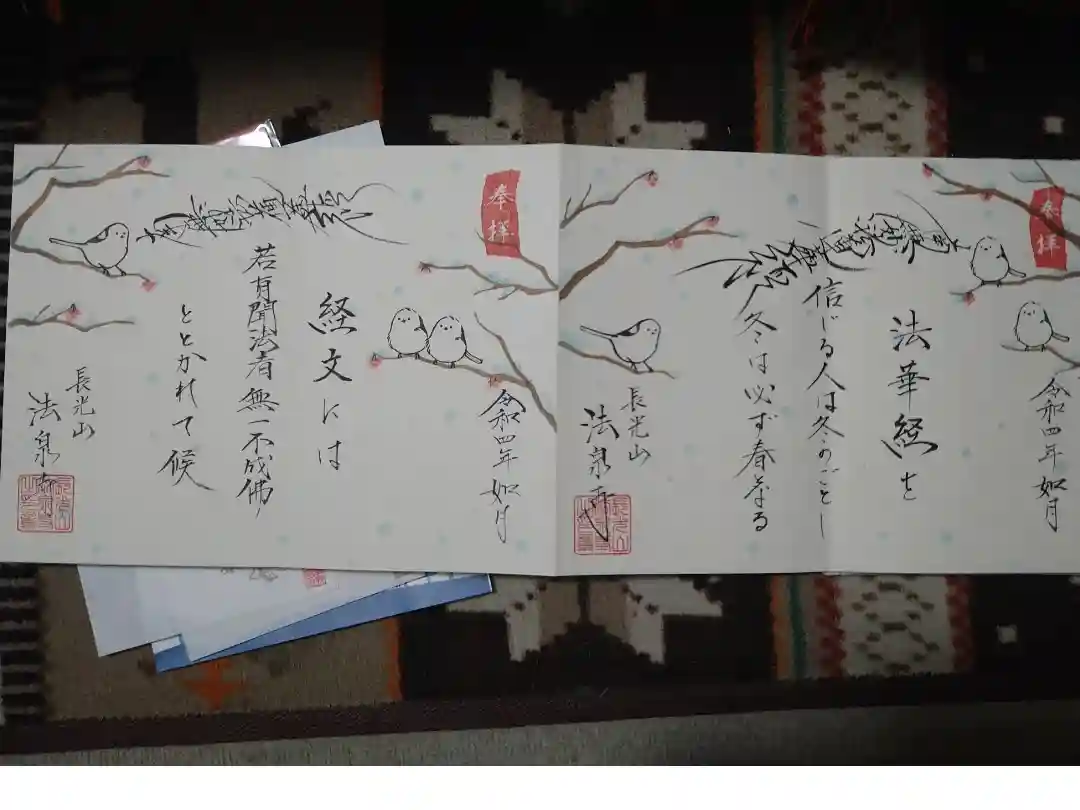 奉拝
令和四年如月
南無妙法蓮華経
法華経を
信じる人は冬のごとし
冬は必ず春となる
長光山
法泉寺
奉拝
令和四年如月
南無妙法蓮華経
経文には
若有聞法者無一不成佛
ととかれて候
長光山
法泉寺